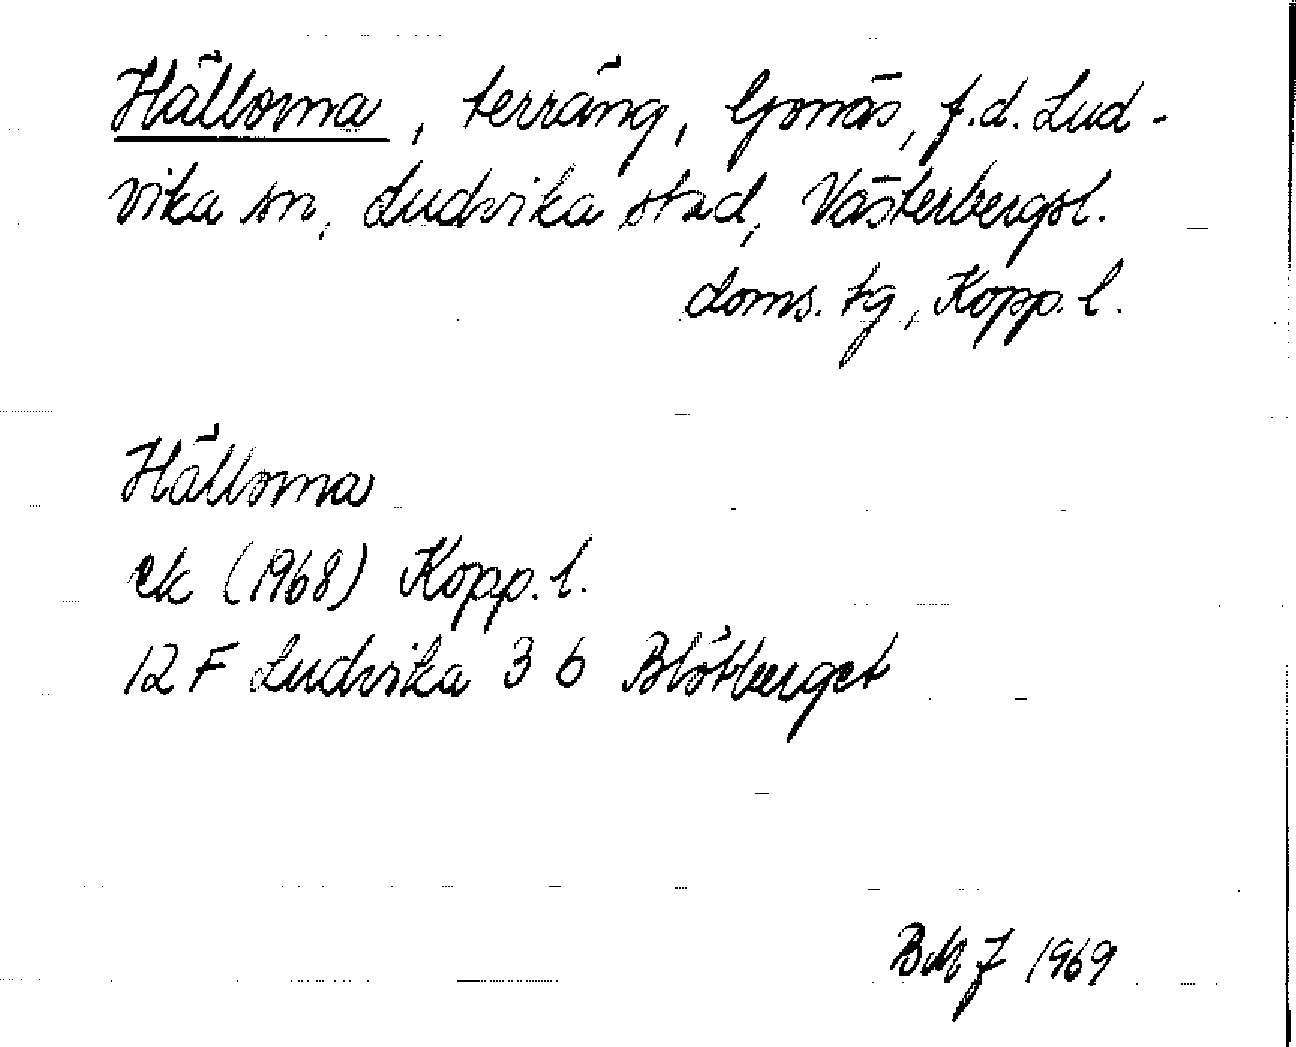 Hällorna, terräng, Gonäs, f.d. Lud-
vika sn, Ludvika stad, Västerbergsl.
doms. tg, Kopp. l.
Hällorna
ek (1968) Kopp. l.
12 F Ludvika 3 b Blötberget
BMJ 1969